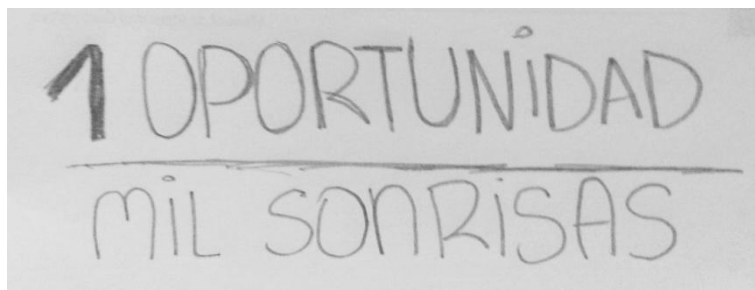 1 OPORTUNIDAD
MIL SONRISAS